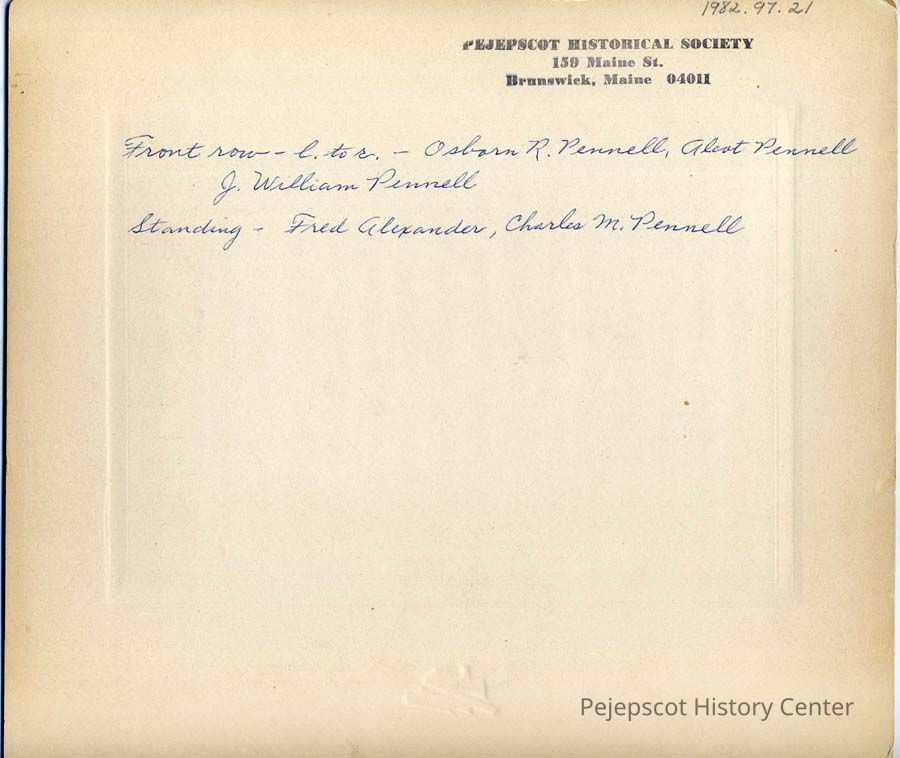 1982.97.21
PEJEPSCOT HISTORICAL SOCIETY
159 Maine St.
Brunswick, Maine 04011
Front row - l. to r. - Osborn R. Pennell, Alcot Pennell
J. William Pennell
Standing - Fred Alexander, Charles M. Pennell
Pejepscot History Center